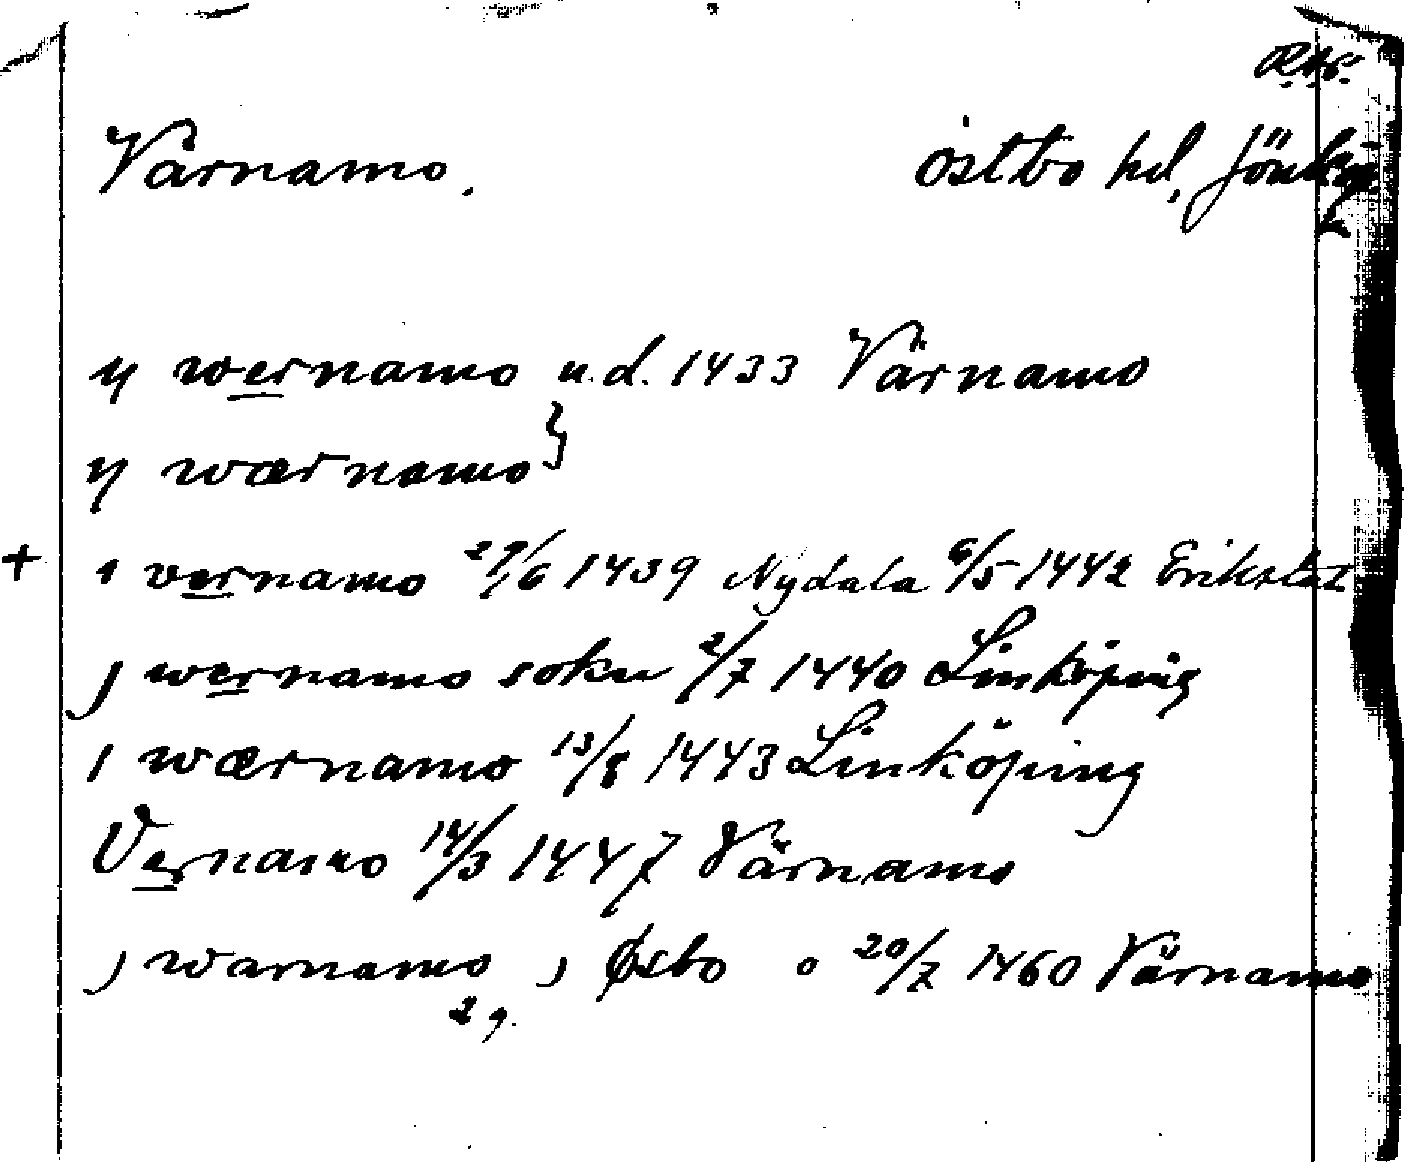 Värnamo. östbo hd, Jönkp.
L
ij wernamo u.d. 1433 Värnamo
ij wærnamo }
+ i vernamo 29/6 1439 Nydala 6/5 1442 Erikstat
j wernamo sokn 2/7 1440 Linköping
i wærnamo 13/8 1443 Linköping
Vernamo 14/3 1447 Värnamo
j warnamo j Øsbo o 20/7 1460 Värnamo
2 g.